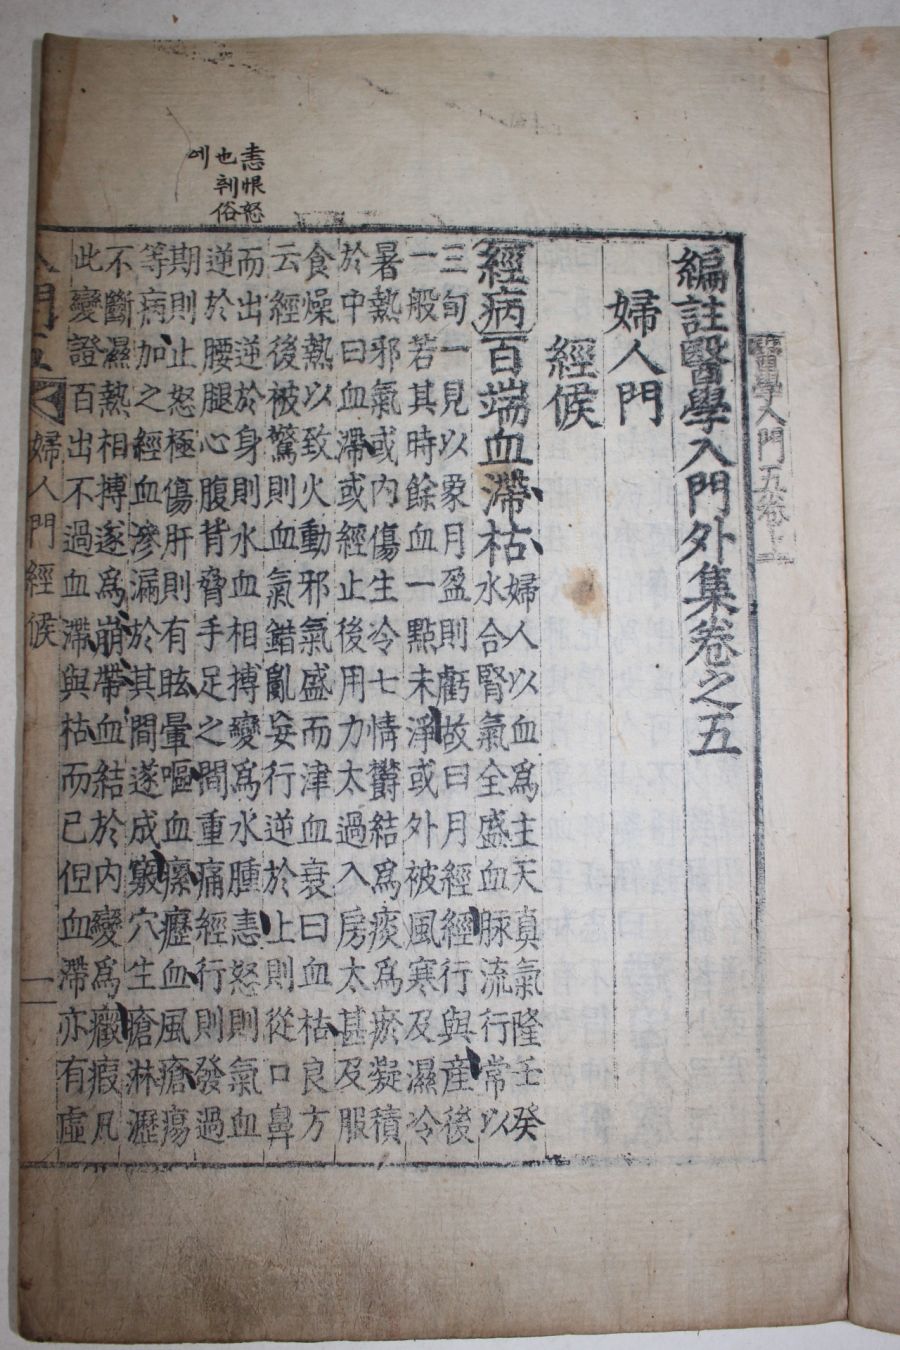 醫學入門五卷
編註醫學入門外集卷之五
婦人門
經候
經病百端血滯枯
婦人以血爲主天眞氣隆壬癸
水合腎氣全盛血脉流行常以
三旬一見以象月盈則虧故曰月經經行與產後
一般若其時餘血一點未淨或外被風寒及濕冷
暑熱邪氣或內傷生冷七情鬱結爲痰爲瘀凝積
於中曰血滯或經止後用力太過入房太甚及服
食燥熱以致火動邪氣盛而津血衰曰血枯良方
云經後被驚則血氣錯亂妄行逆於上則從口鼻
而出逆於身則水血相搏變爲水腫恚怒則氣血
逆於腰腿心腹背脅手足之間重痛經行則發過
期則止怒極傷肝則有眩暈嘔血瘰癧血風瘡瘍
等病加之經血滲漏於其間遂成竅穴生瘡淋瀝
不斷濕熱相搏遂爲崩帶血結於內變爲癥瘕凡
此變證百出不過血滯與枯而已但血滯亦有虛
門五 婦人門經候 一
恚恨怒
也 俗
에